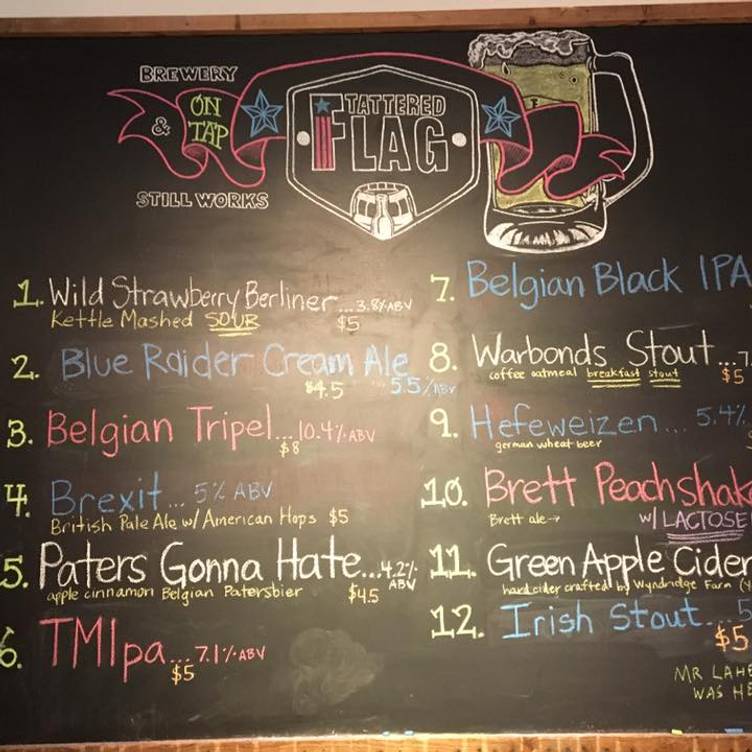 BREWERY
& ON TAP
STILL WORKS
TATTERED
FLAG
1. Wild Strawberry Berliner... 3.8% ABV
Kettle Mashed SOUR $5
2. Blue Raider Cream Ale
$4.5 ... 5.5% ABV
3. Belgian Tripel... 10.4% ABV
$8
4. Brexit... 5% ABV
British Pale Ale w/ American Hops $5
5. Paters Gonna Hate... 4.2% ABV
apple cinnamon Belgian Patersbier $4.5
6. TMIpa... 7.1% ABV
$5
7. Belgian Black IPA
8. Warbonds Stout...
coffee oatmeal breakfast stout $5
9. Hefeweizen... 5.4%
german wheat beer
10. Brett Peachshak
Brett ale→ w/ LACTOSE
11. Green Apple Cider
hard cider crafted by Wyndridge Farm
12. Irish Stout... 5
$5
MR LAHE
WAS HE